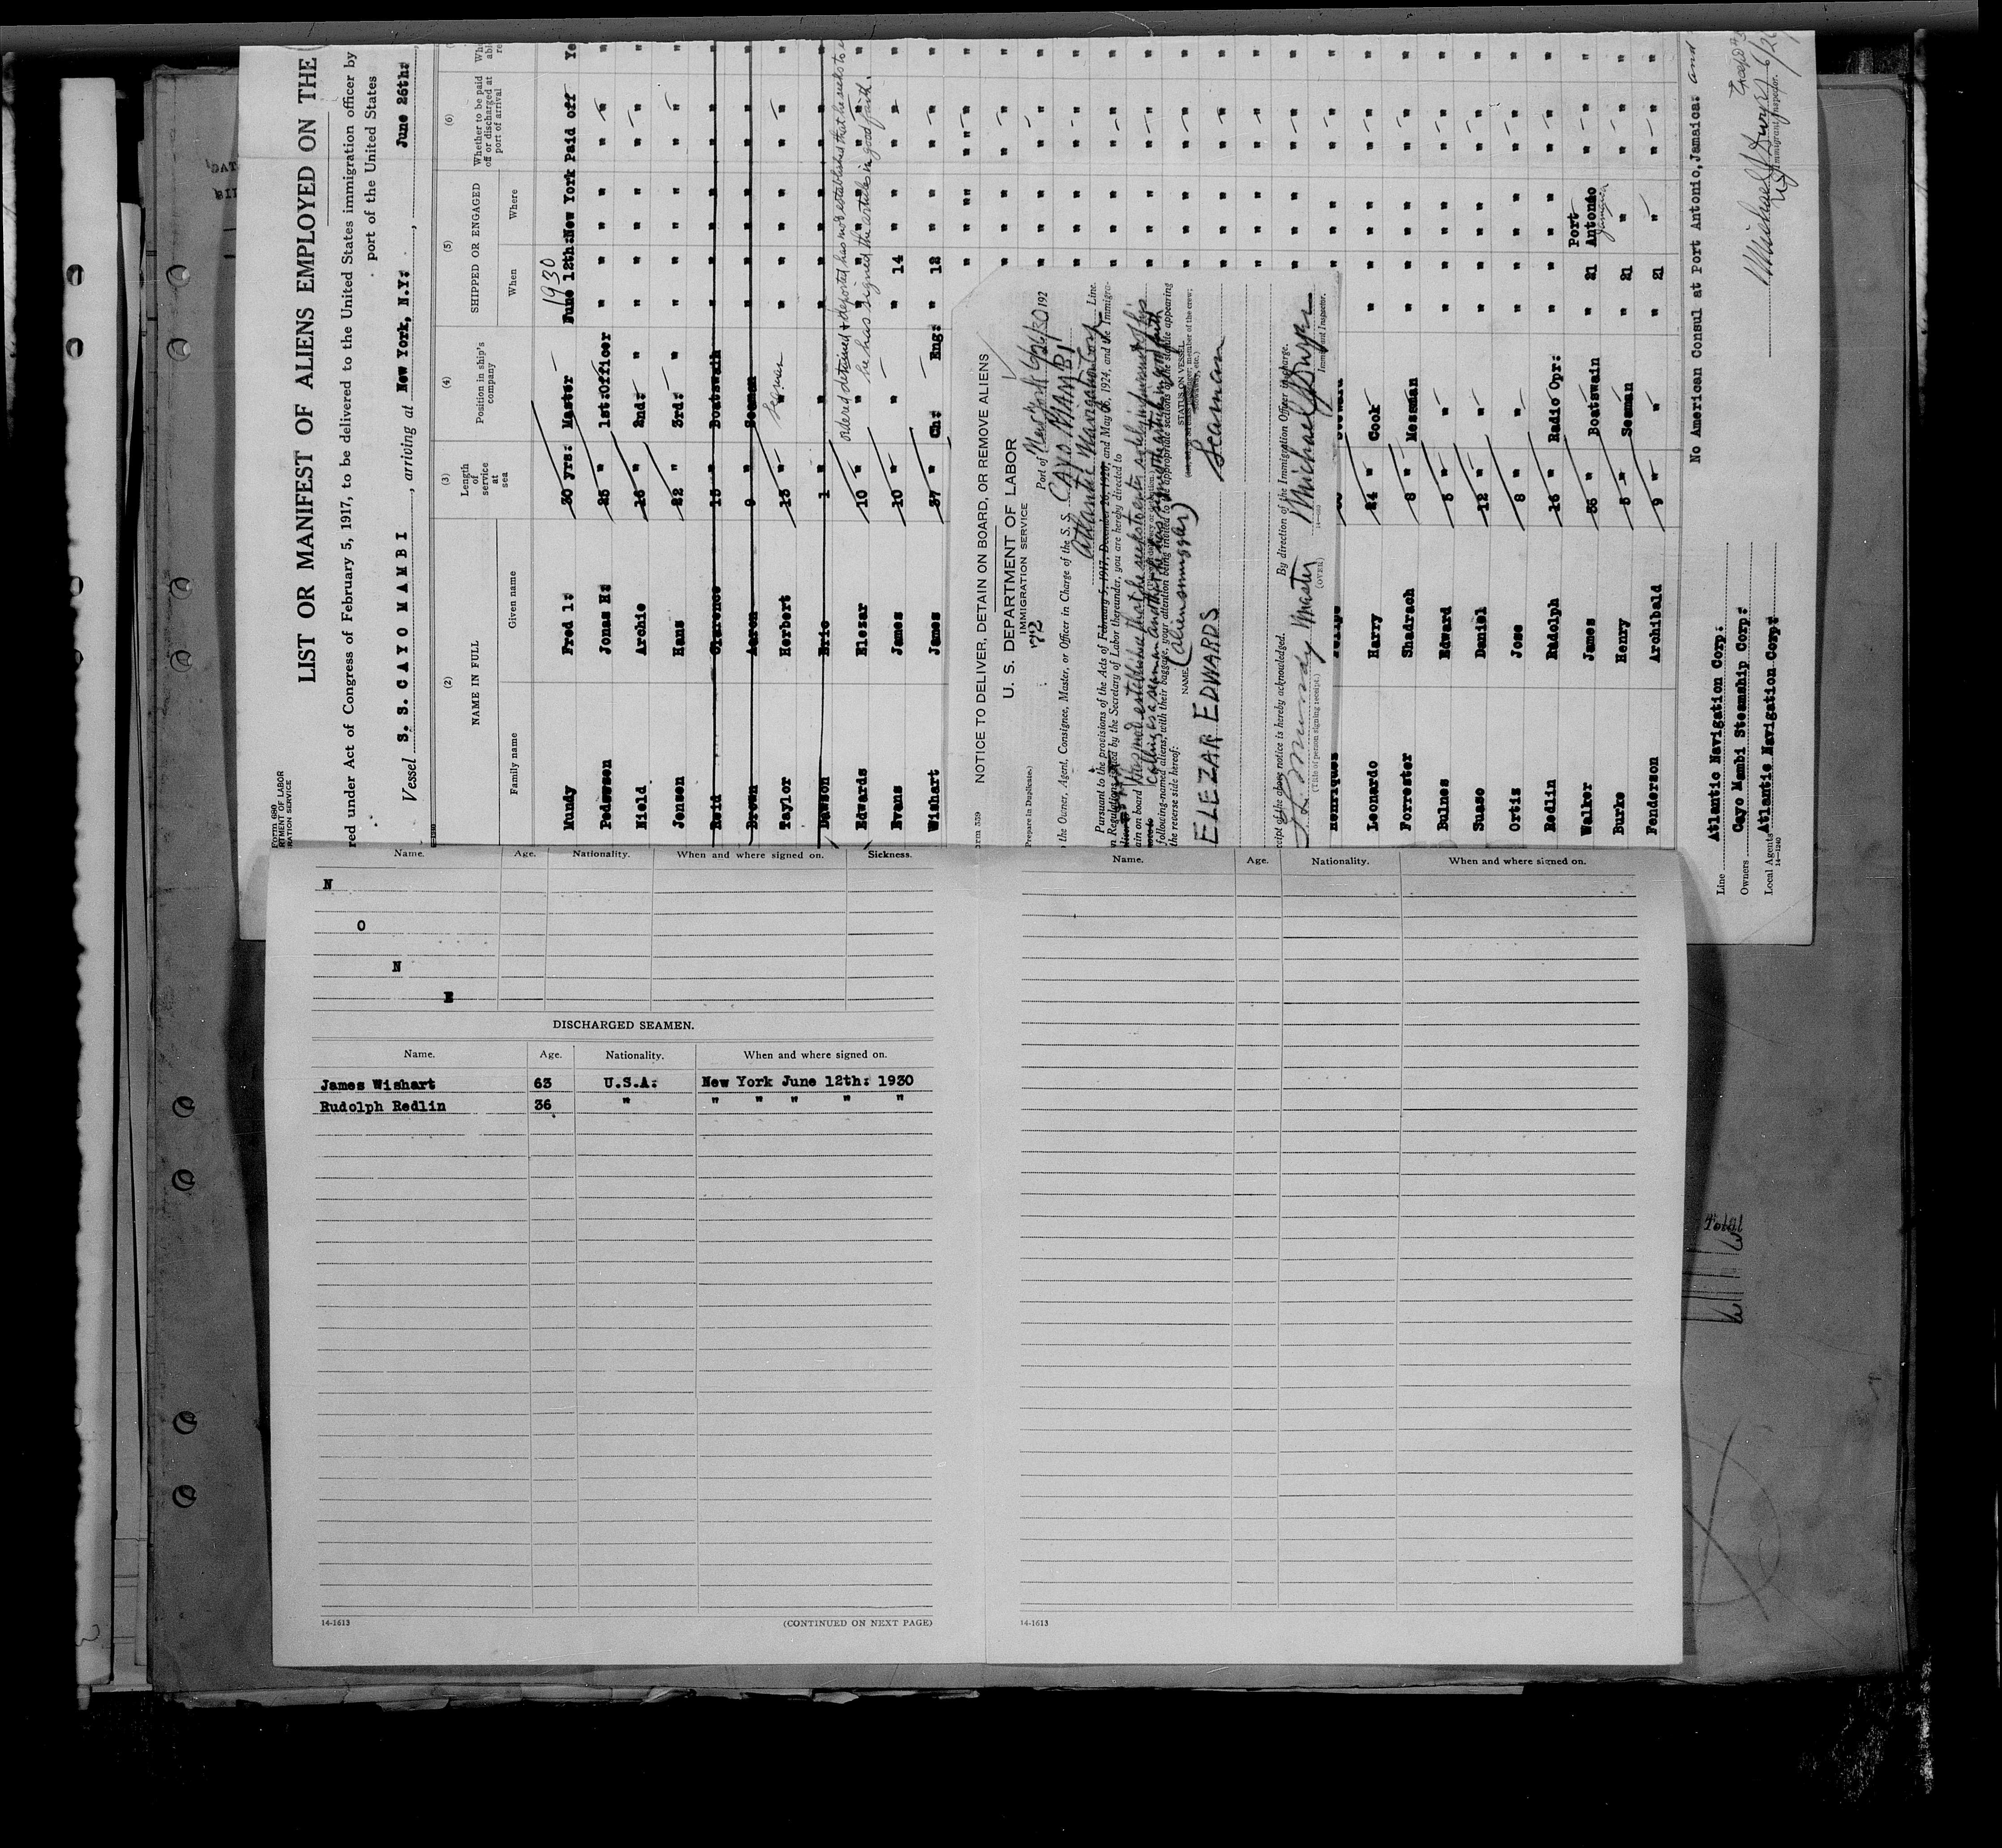 Form 680
LIST OR MANIFEST OF ALIENS EMPLOYED ON THE
red under Act of Congress of February 5, 1917, to be delivered to the United States immigration officer by
port of the United States
Vessel S. S. CAYO MAMBI , arriving at New York, N.Y: , June 26th:
(2) (3) (4) (5) (6)
NAME IN FULL Length of service at sea Position in ship's company SHIPPED OR ENGAGED Whether to be paid off or discharged at port of arrival
Family name Given name When Where
1930
Mundy Fred l: 30 yrs: Master June 12th: New York Paid off Ye
Pedersen Jonas H: 25 " 1st:Officer " " " " " " "
Nield Archie 16 " 2nd: " " " " " " " "
Jensen Hans 22 " 3rd: " " " " " " " "
Reid Clarence 15 " Boatswain " " " " " " "
Brown Aaron 9 " Seaman " " " " " " "
Taylor Herbert 13 " " Seaman " " " " " " "
Dawson Eric 1 " " " " " " " "
ordered detained & deported has not established that he seeks to e
Edwards Elezar 10 " " " " " " " " "
he has signed the articles in good faith.
Evans James 10 " " " 14 " " " " "
Wishart James 37 " Ch: Eng: " 12 " " " " "
NOTICE TO DELIVER, DETAIN ON BOARD, OR REMOVE ALIENS
U. S. DEPARTMENT OF LABOR
IMMIGRATION SERVICE
Prepare in Duplicate.) 72 Port of New York 6/26/30 192
the Owner, Agent, Consignee, Master, or Officer in Charge of the S. S. CAYO MAMBI
Atlantic Navigation Corp Line.
Pursuant to the provisions of the Acts of February 5, 1917, December 26, 1920, and May 26, 1924, and the Immigra-
n Regulations issued by the Secretary of Labor thereunder, you are hereby directed to
ain on board has not established that he seeks to enter solely in pursuit of his
calling as a seaman and that he has signed the articles in good faith
following-named aliens, with their baggage, your attention being invited to the appropriate sections of the statute appearing
the reverse side hereof:
NAME (alien smuggler) STATUS ON VESSEL
ELEZAR EDWARDS Seaman
By direction of the Immigration Officer in charge.
ceipt of the above notice is hereby acknowledged.
F. L. Mundy Master Michael J Dwyer
(Title of person signing receipt.) (OVER) Immigrant Inspector.
Henriques
Leonardo Harry 24 " Cook " " " " " " "
Forrester Shadrach 8 " Messman " " " " " " "
Bulnes Edward 5 " " " " " " " " "
Suaso Daniel 12 " " " " " " " " "
Ortis Jose 8 " " " " " " " " "
Redlin Rudolph 16 " Radio Opr: " " " " " " "
Walker James 35 " Boatswain " 21 Port Antonio Jamaica " " "
Burke Henry 5 " Seaman " 21 " " " "
Fenderson Archibald 9 " " " 21 " " " "
No American Consul at Port Antonio,Jamaica: and
Line Atlantic Navigation Corp:
Owners Cayo Mambi Steamship Corp:
Local Agents Atlantic Navigation Corp:
14-1240
Michael J Dwyer 6/26
Immigrant Inspector.
Name. Age. Nationality. When and where signed on. Sickness.
N
O
N
E
DISCHARGED SEAMEN.
Name. Age. Nationality. When and where signed on.
James Wishart 63 U.S.A: New York June 12th: 1930
Rudolph Redlin 36 " " " " " "
14-1613 (CONTINUED ON NEXT PAGE)
Name. Age. Nationality. When and where signed on.
14-1613
Total